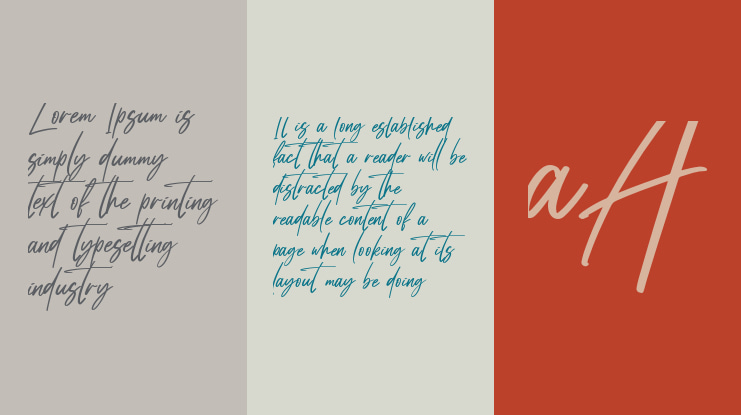 Lorem Ipsum is
simply dummy
text of the printing
and typesetting
industry
It is a long established
fact that a reader will be
distracted by the
readable content of a
page when looking at its
layout may be doing
aH